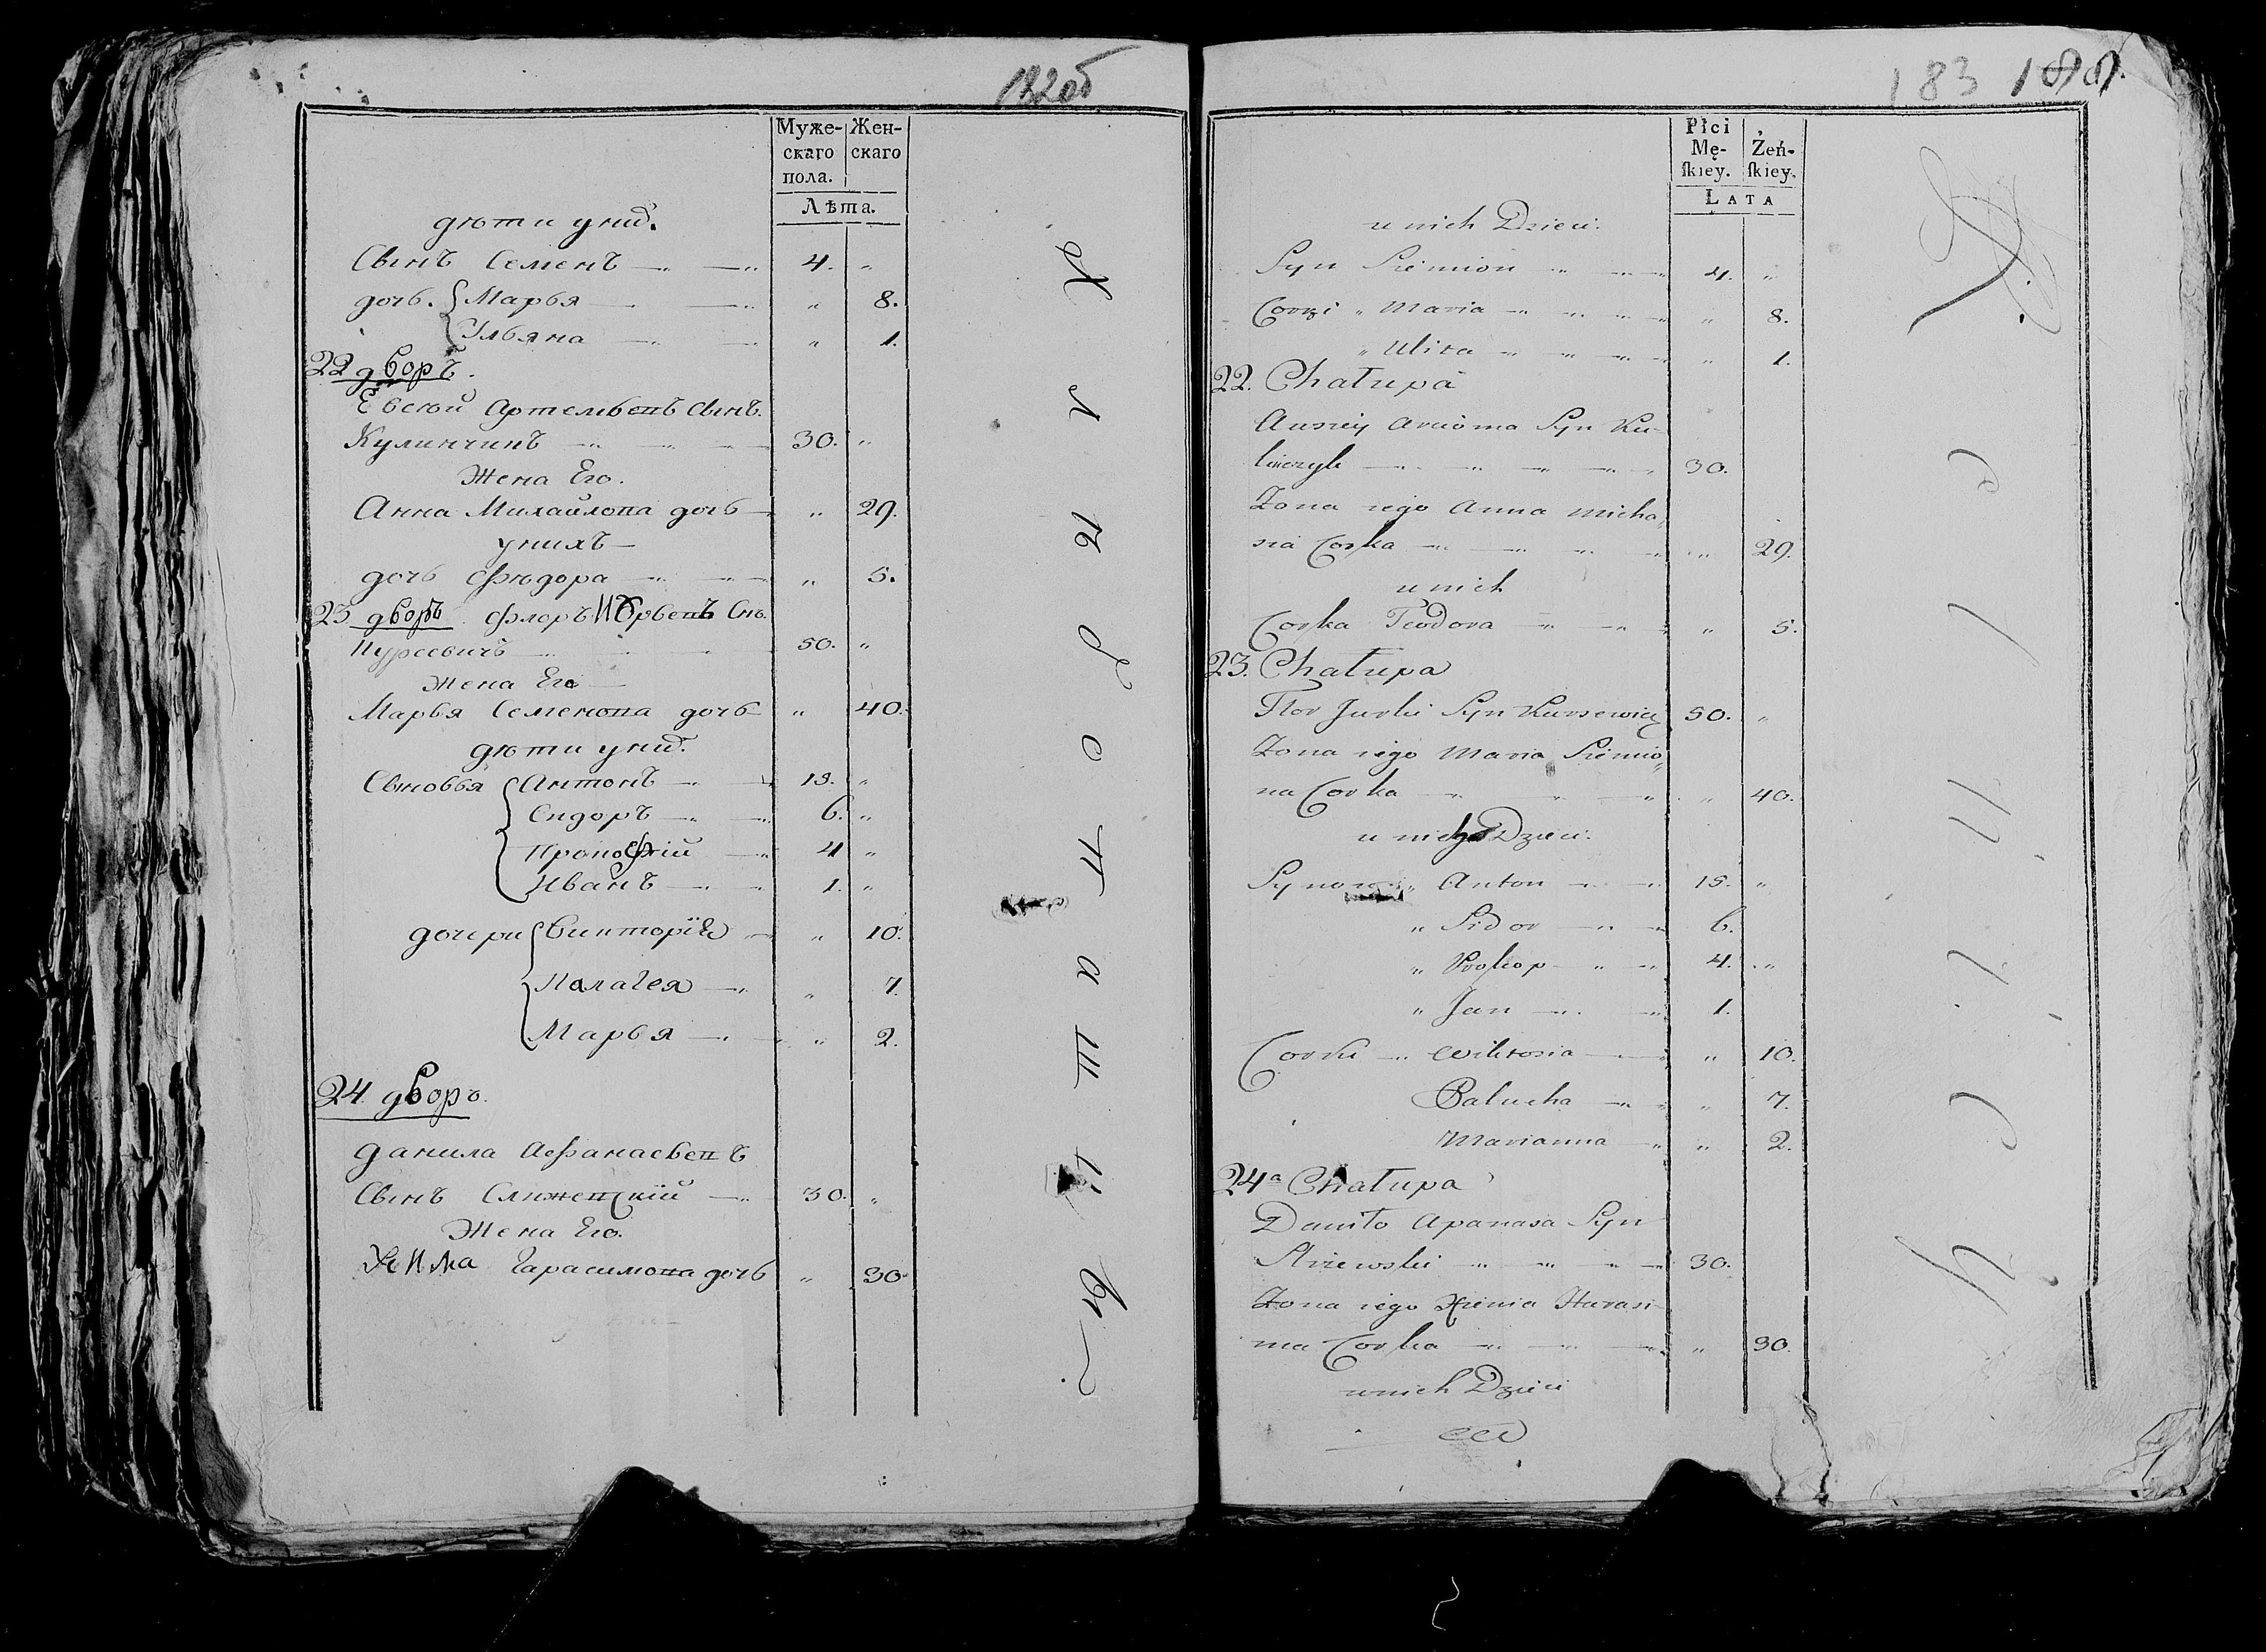 182об
Муже-
скаго
пола.
Жен-
скаго
Лѣта.
дѣти унихъ.
Сынъ Семенъ 4. „
дочь. Марья „ 8.
Ульяна „ 1.
22 дворъ.
Евсѣй Артемьевъ Сынъ
Кулинчикъ 30. „
Жена Его.
Анна Михайлова дочь „ 29.
унихъ
дочь Фѣдора „ 5.
23 дворъ Флоръ Юрьевъ Снъ.
Курсевичъ 50. „
Жена Его
Марья Семенова дочь „ 40.
дѣти унихъ.
Сыновья Антонъ 15. „
Сидоръ 6. „
Прокофій 4 „
Иванъ 1. „
дочери Викторія „ 10.
Палагея „ 7.
Марья „ 2.
24 дворъ.
Данила Афанасьевъ
Сынъ 30. „
Жена Его.
Гарасимова дочь „ 30.
183
Płci
Mę-
ſkiey.
Żeń-
ſkiey.
LATA
u nich Dzieci.
Syn Siemion 4. „
Corki „ Maria „ 8.
„ Ulita „ 1.
22. Chałupa
Ausiey Arcioma Syn Ku-
linczyk 30.
Zona iego Anna Micha,
sia Corka „ 29.
u nich
Corka Teodora „ 5.
23. Chałupa
Flor Jurki Syn Kursewicz 50. „
Zona iego Maria Siemio„
na Corka „ 40.
u nich Dzieci.
Synowie „ Anton 15. „
„ Sidor 6.
„ Prokop 4. „
„ Jan 1.
Corki Wiktoria „ 10.
Palucha „ 7.
Marianna „ 2.
24a Chałupa
Daniło Apanasa Syn
Slizewski 30.
Zona iego Xienia Harasi-
ma Corka „ 30.
u nich Dzieci